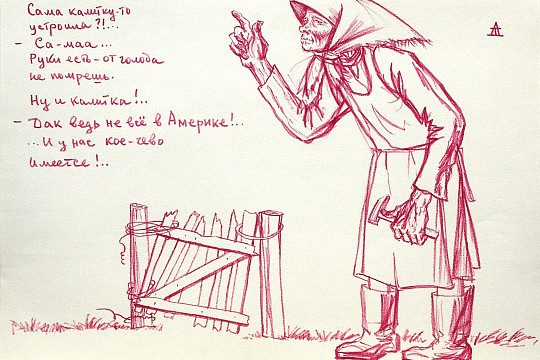 Сама калитку-то
устроила?!...
- Са-маа...
Руки есть-от голода
не помрешь.
Ну и калитка!..
- Дак ведь не всё в Америке!..
...И у нас кое-чево
имеется!..